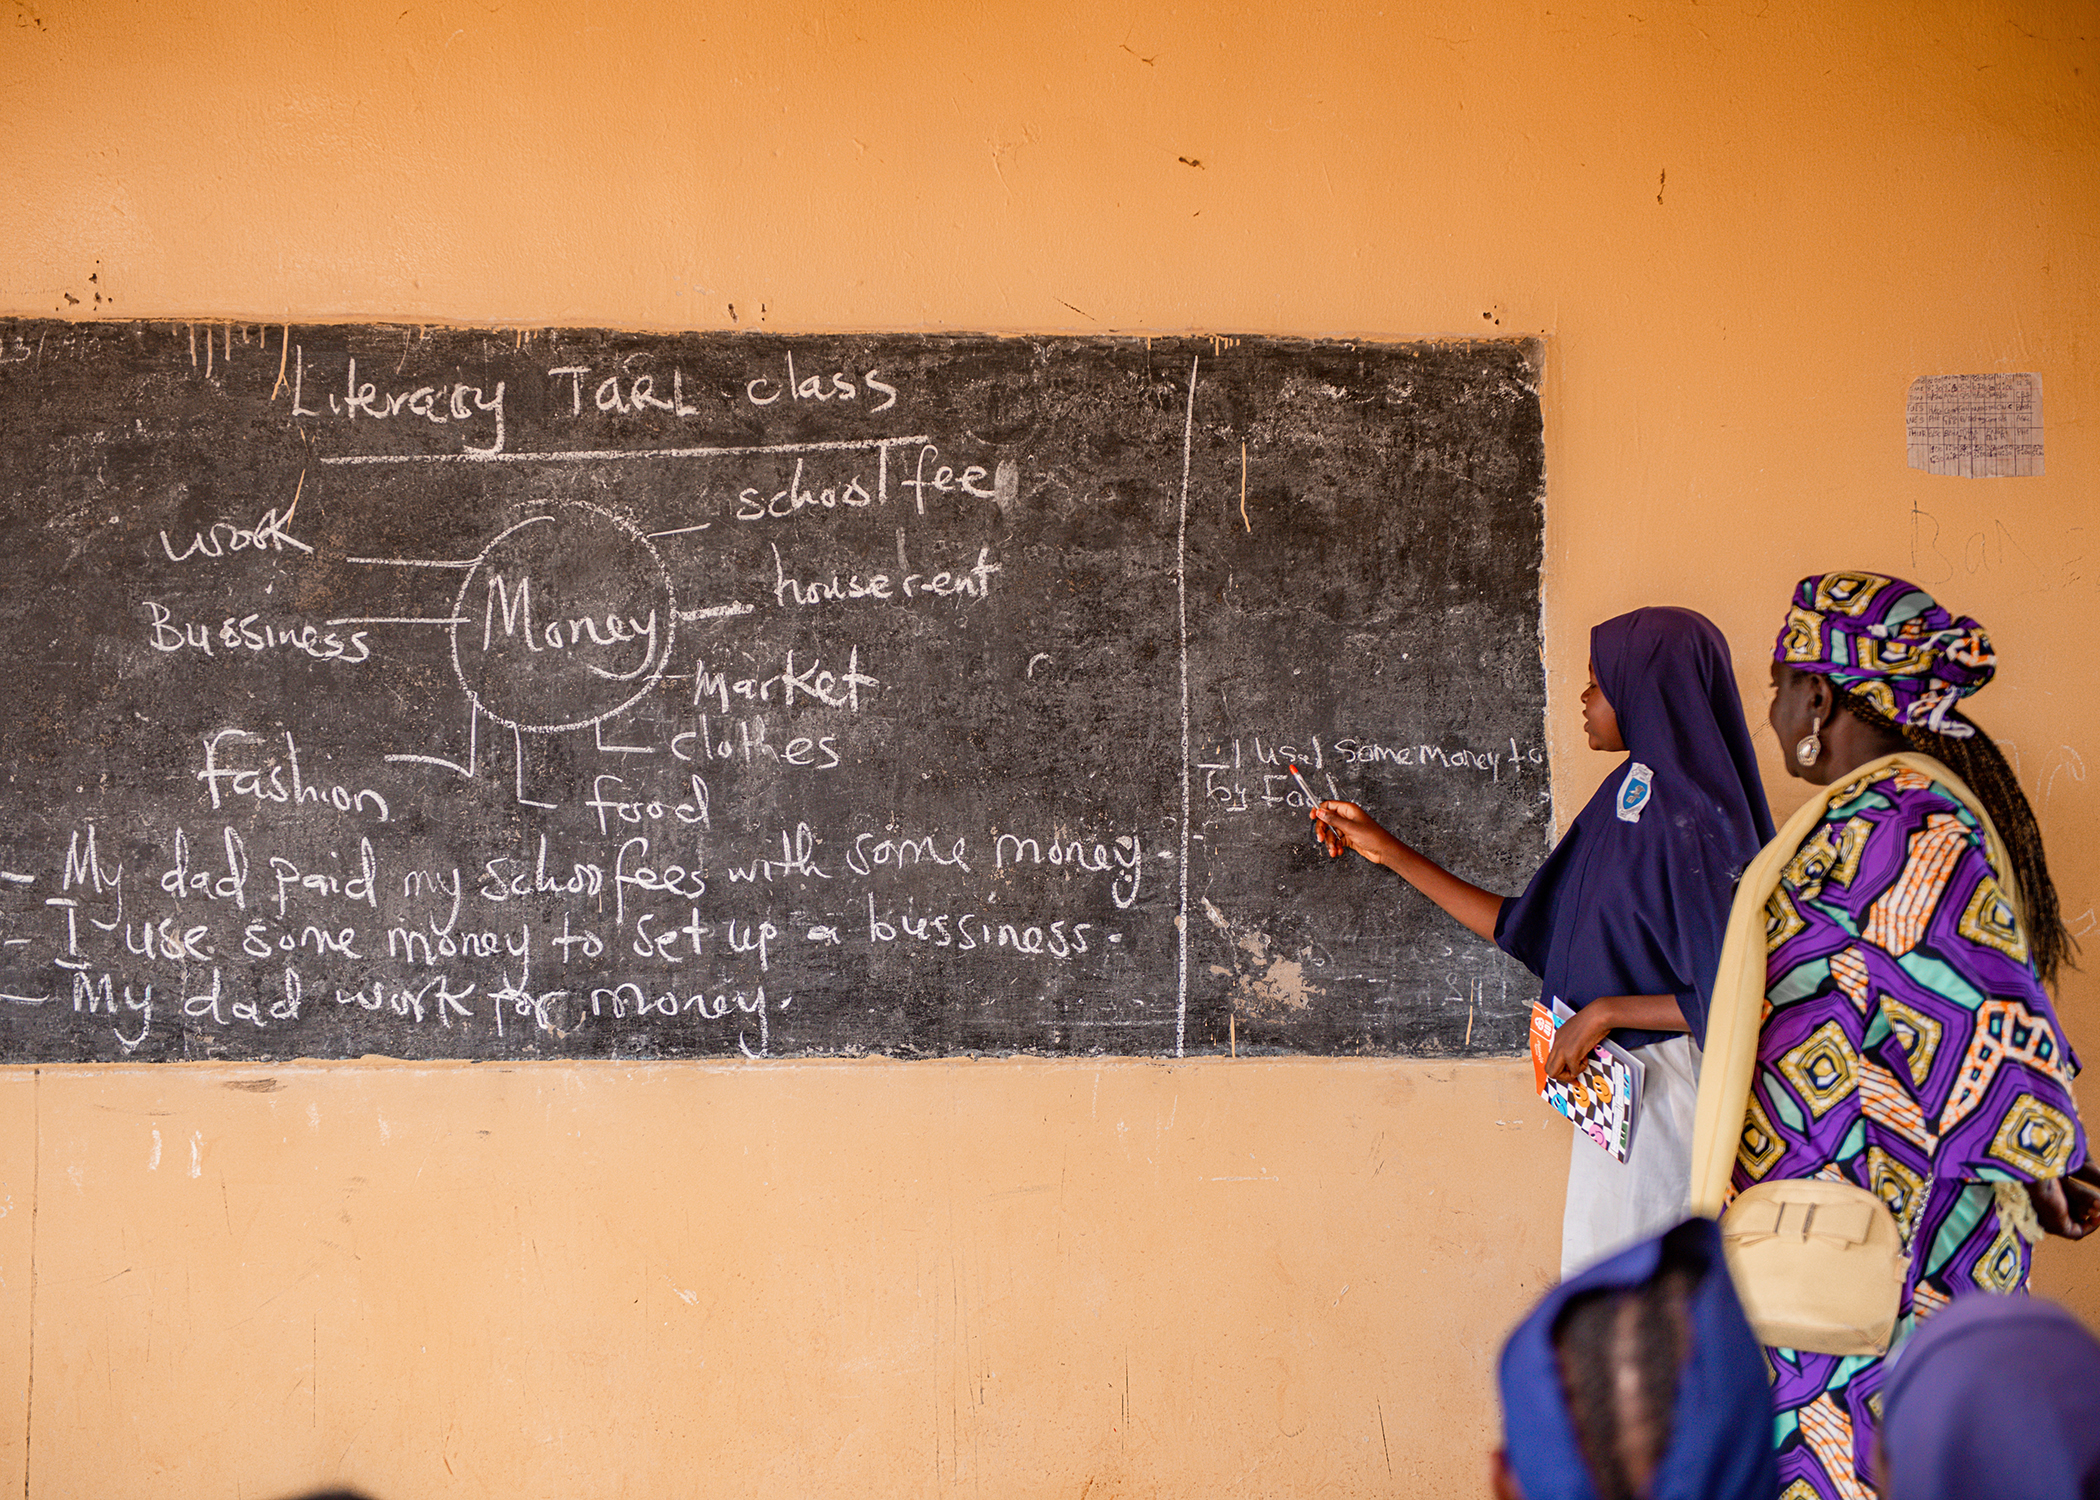 Literacy TaRL class
school fee
work
house rent
Money
Bussiness
Market
clothes
Fashion
food
- My dad paid my school fees with some money.
- I use some money to set up a bussiness.
- My dad work for money.
- I used some money to
by Food